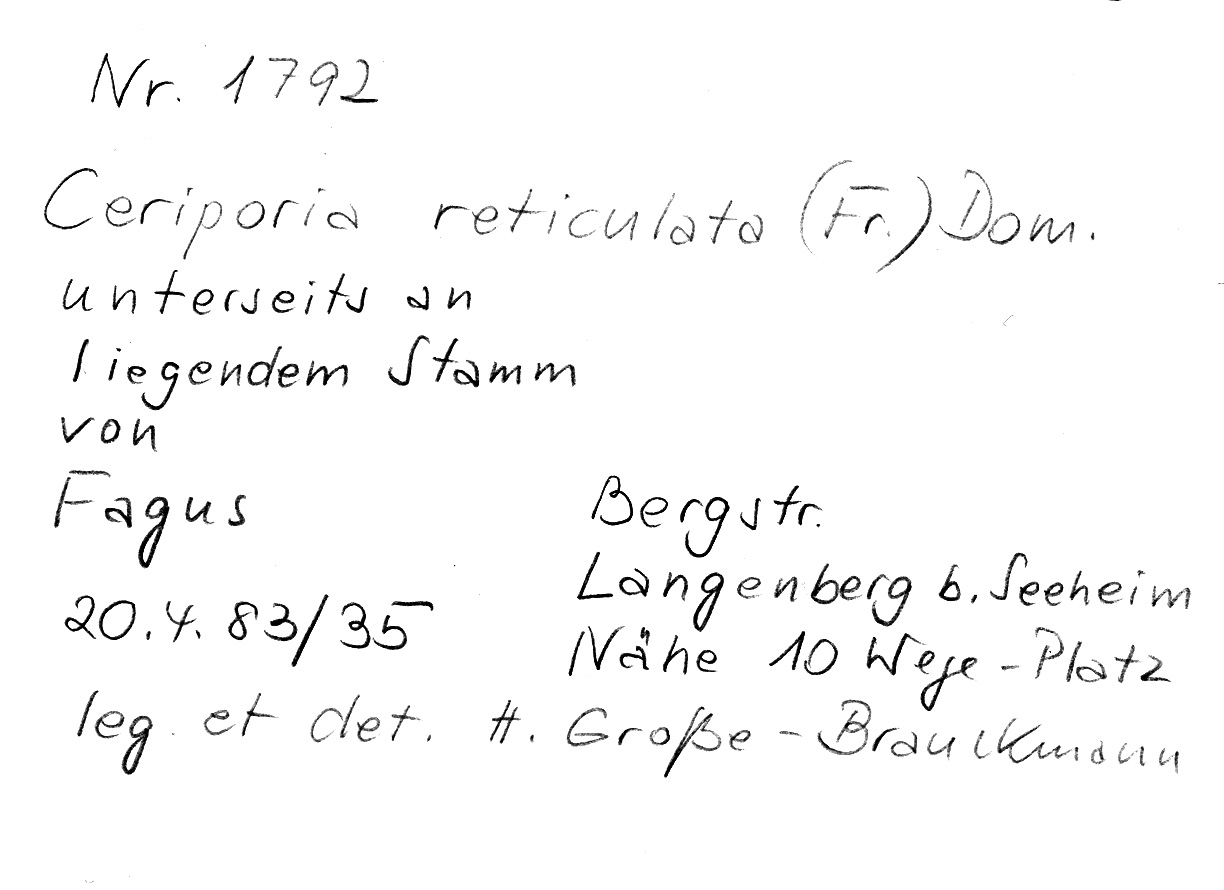 Nr. 1792
Ceriporia reticulata (Fr.) Dom.
unterseits an
liegendem Stamm
von
Fagus
20.4.83/35
Bergstr.
Langenberg b. Seeheim
Nähe 10 Wege-Platz
leg. et det. H. Große-Brauckmann